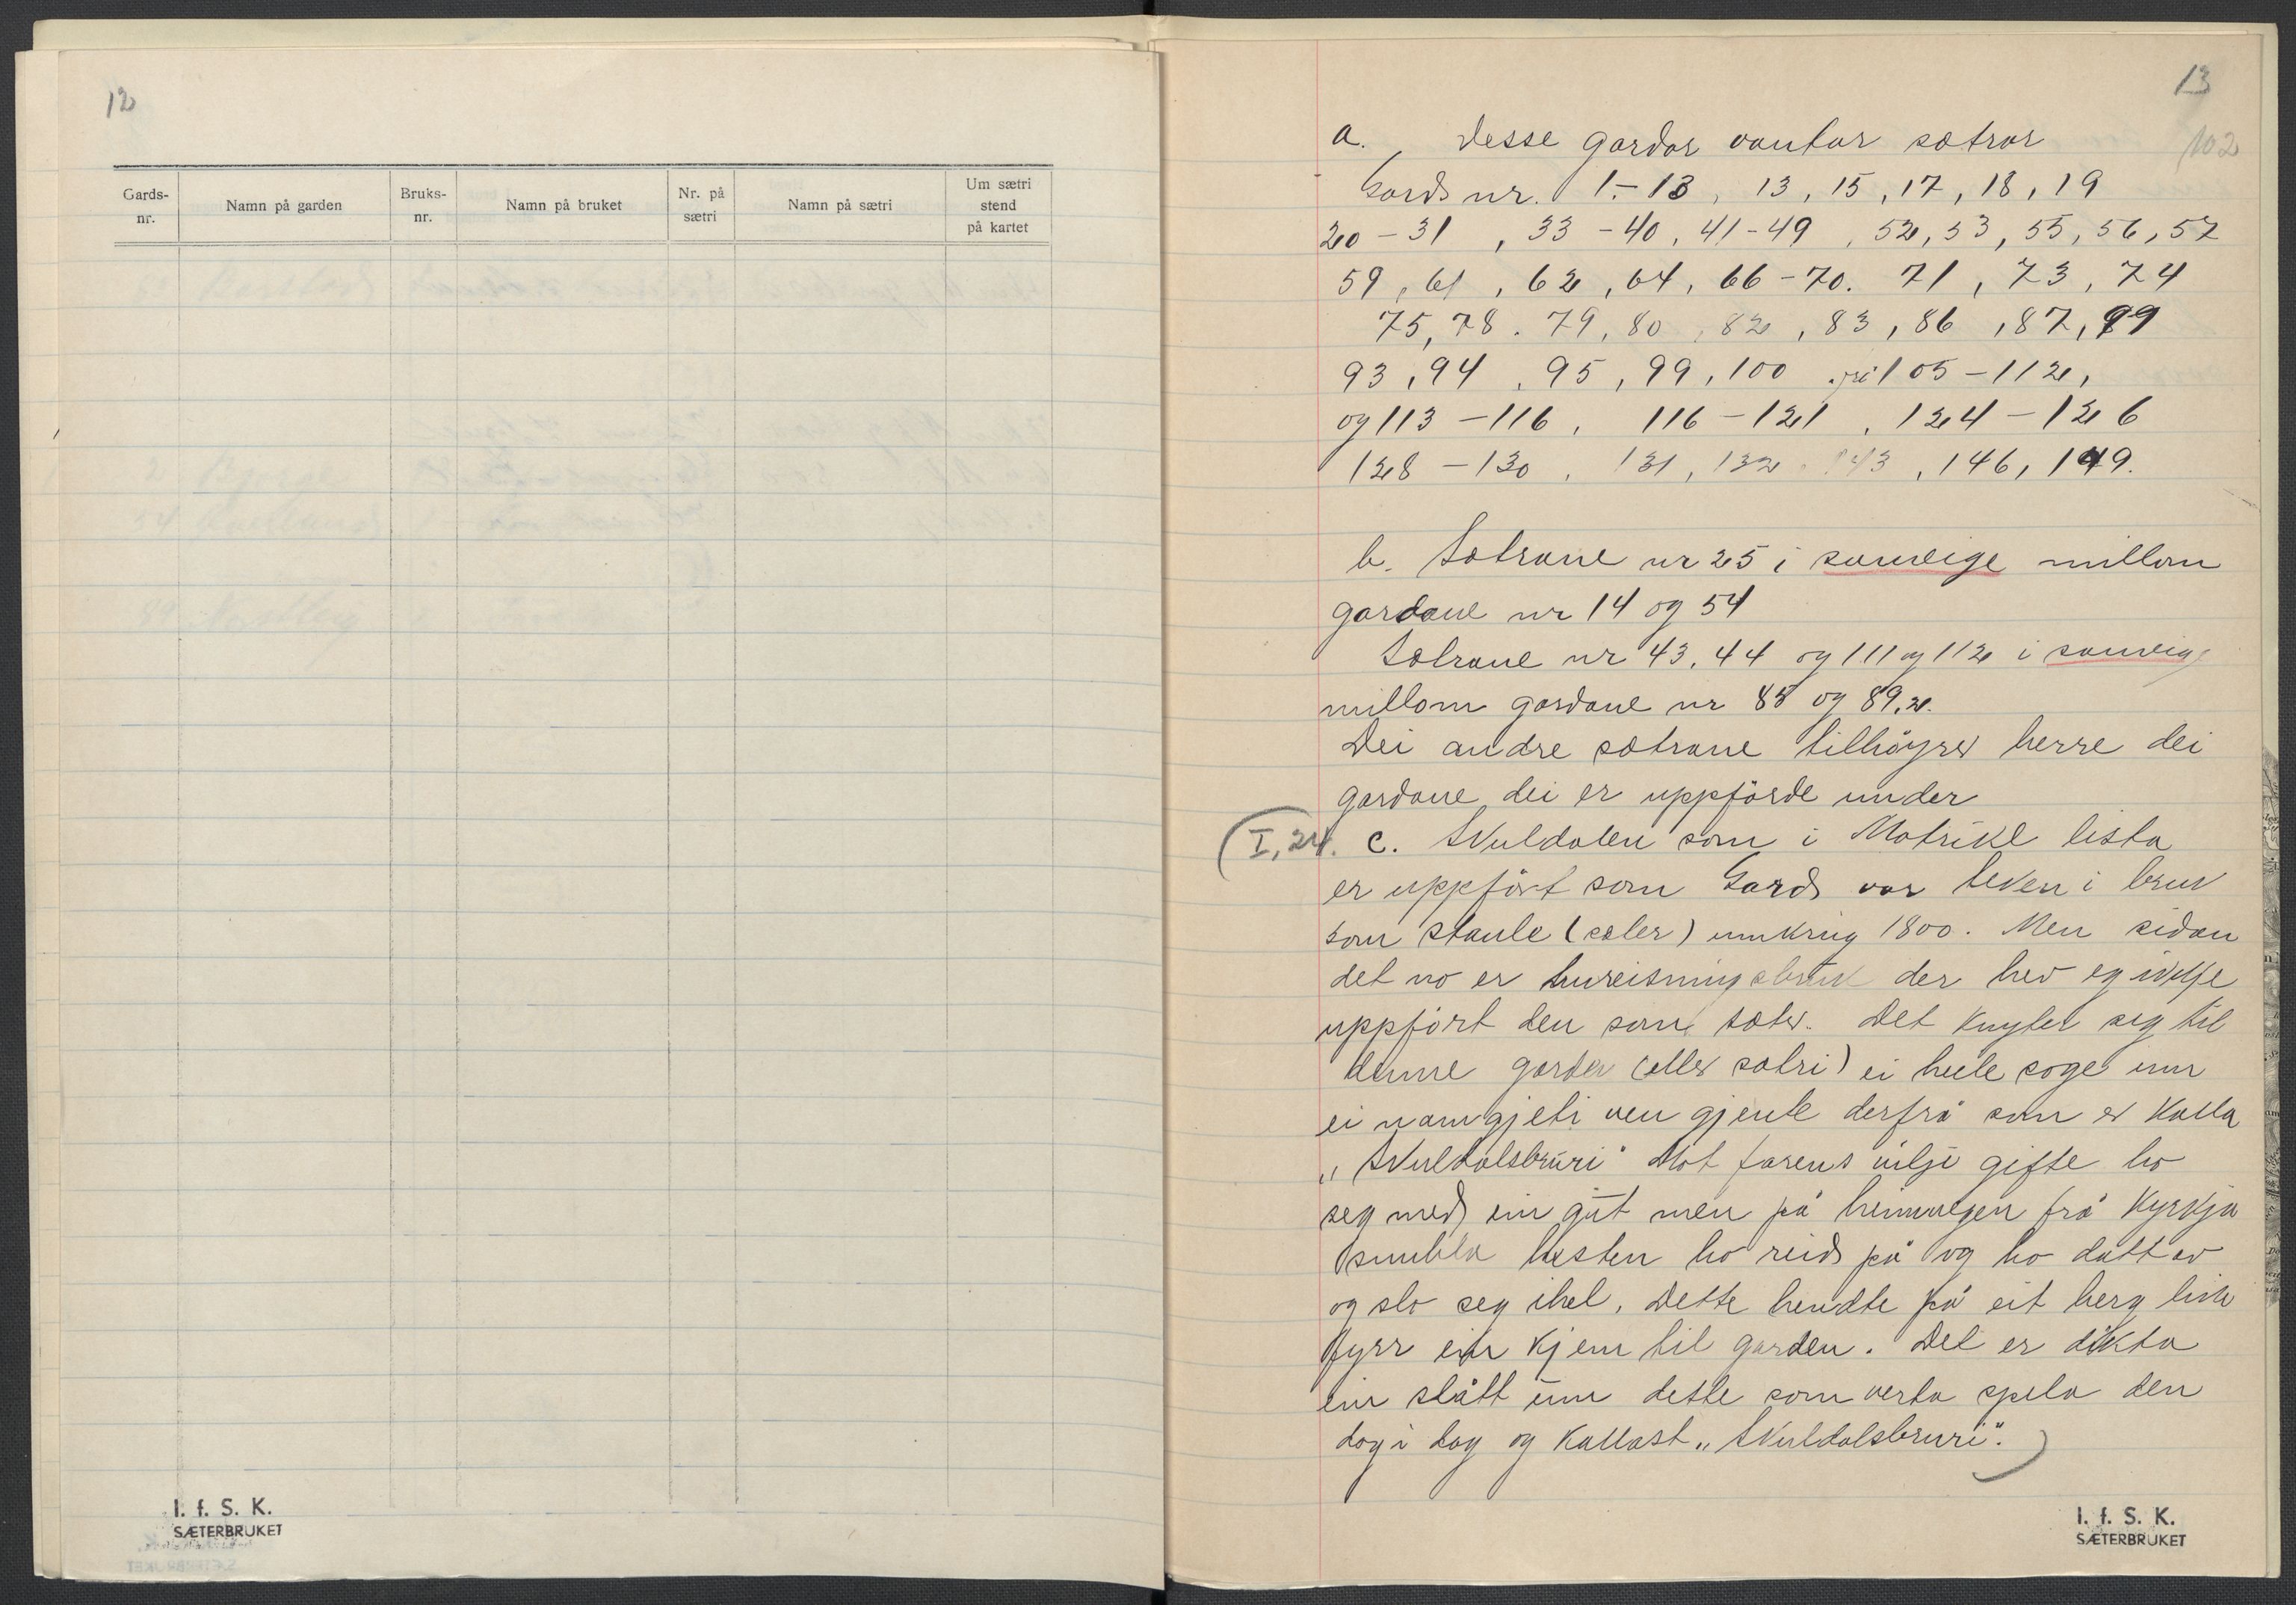 12
Gards-
nr.
Namn på garden
Bruks-
nr.
Namn på bruket
Nr. på
sætri
Namn på sætri
Um sætri
stend
på kartet
I. f. S. K.
SÆTERBRUKET
13
102
a. Desse gardar vantar sætrar
Gards nr. 1.-13, 13, 15, 17, 18, 19
20-31, 33-40, 41-49, 52, 53, 55, 56, 57
59, 61, 62, 64, 66-70. 71, 73, 74
75, 78. 79, 80, 82, 83, 86, 87, 89
93, 94, 95, 99, 100 105-112,
og 113-116, 116-121, 124-126
128-130, 131, 132, 143, 146, 149.
b. Sætrane nr 25 i sameige millom
gardane nr 14 og 54
Sætrane nr 43, 44 og 111 og 112 i sameige
millom gardane nr 88 og 89,2.
Dei andre sætrane tilhöyrer berre dei
gardane dei er uppförde under
(I, 24. c. Skuldalen som i Matrikl lista
er uppfört som Gard var teken i bruk
som staule (sæter) umkring 1800. Men sidan
det no er bureisningsbruk der hev eg ikkje
uppfört den som sæter. Det knyter seg til
denne garden (eller sætri) ei heile soge um
ei namgjeti ven gjente derfrå som er kalla
„Skuldalsbruri" Mot farens vilje gifte ho
seg med ein gut men på heimvegen frå kyrkja
snubla hesten ho reid på og ho datt av
og slo seg ihel. Dette hendte på eit berg like
fyrr ein kjem til garden. Det er dikta
ein slått um dette som verta spela den
dag i dag og kallast „Skuldalsbruri".)
I. f. S. K.
SÆTERBRUKET